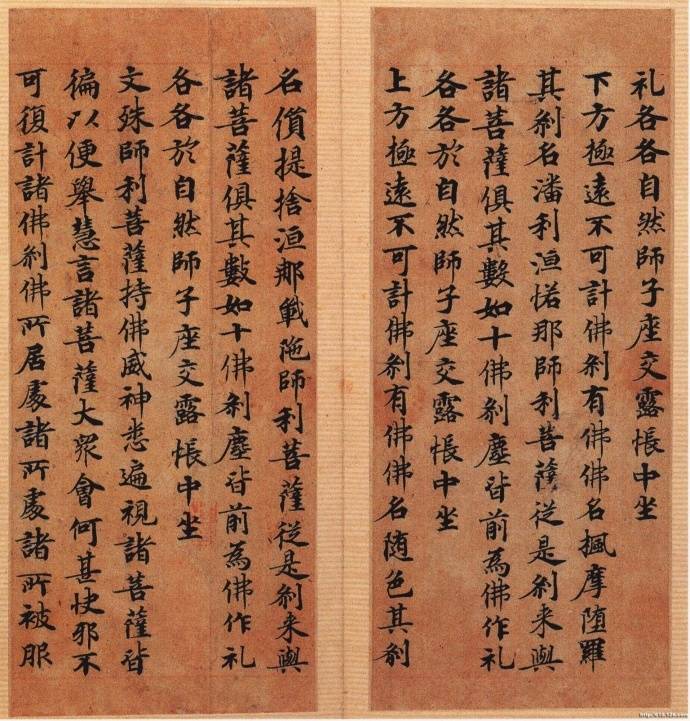 礼各各自然師子座交露帳中坐
下方極遠不可計佛刹有佛佛名楓摩墮羅
其刹名潘利洹㤉那師利菩薩従是刹来與
諸菩薩俱其數如十佛刹塵皆前為佛作礼
各各於自然師子座交露帳中坐
上方極遠不可計佛刹有佛佛名随色其刹
名儐提捨洹那戰陁師利菩薩従是刹来與
諸菩薩俱其數如十佛刹塵皆前為佛作礼
各各於自然師子座交露帳中坐
文殊師利菩薩持佛威神悉遍視諸菩薩皆
徧以便舉慧言諸菩薩大衆會何甚快邪不
可復計諸佛刹佛所居處諸所處諸所被服